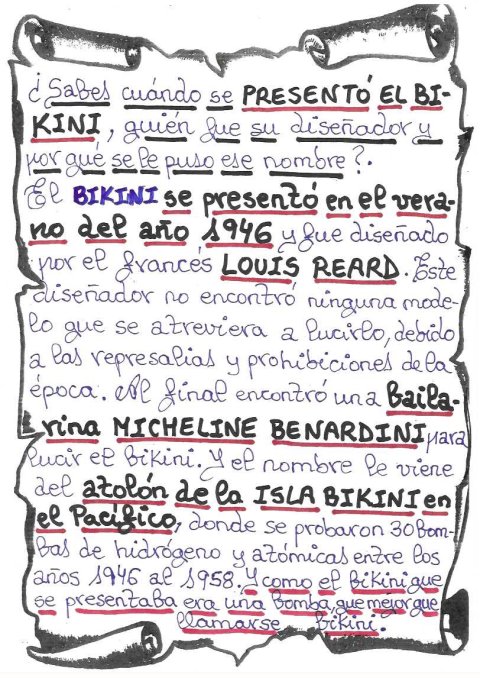 ¿Sabes cuándo se PRESENTÓ EL BI-
KINI, quién fue su diseñador y
por qué se le puso ese nombre?.
El BIKINI se presentó en el vera-
no del año 1946 y fue diseñado
por el francés LOUIS REARD. Este
diseñador no encontró ninguna mode-
lo que se atreviera a lucirlo, debido
a las represalias y prohibiciones de la
época. Al final encontró una baila-
rina MICHELINE BENARDINI para
lucir el bikini. Y el nombre le viene
del atolón de la ISLA BIKINI en
el Pacífico, donde se probaron 30 bom-
bas de hidrógeno y atómicas entre los
años 1946 al 1958. Y como el bikini que
se presentaba era una bomba, que mejor que
llamarse bikini.